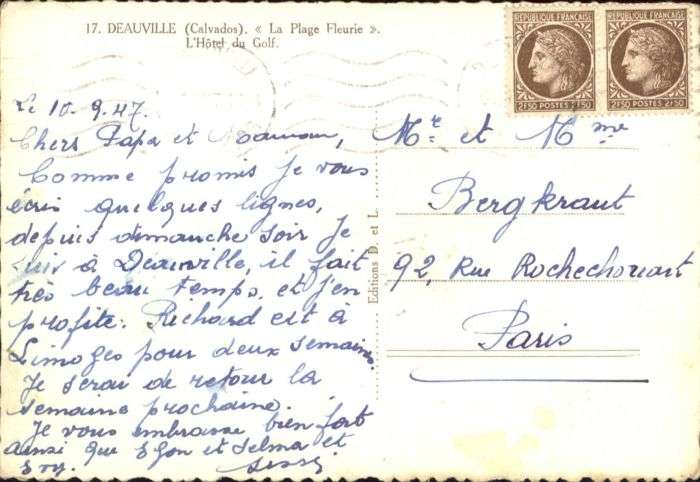 17. DEAUVILLE (Calvados). « La Plage Fleurie ».
L'Hôtel du Golf.
REPUBLIQUE FRANÇAISE
2F50 POSTES 2F50
REPUBLIQUE FRANÇAISE
2F50 POSTES 2F50
Le 10.9.47.
Chers Papa et Maman,
Comme promis je vous
écris quelques lignes,
depuis dimanche soir je
suis à Deauville, il fait
très beau temps, et j'en
profite. Richard est à
Limoges pour deux semaines.
Je serai de retour la
semaine prochaine.
Je vous embrasse bien fort
ainsi que Egon et Selma et
Editions D. et L.
Mr et Mme
Bergkraut
92, Rue Rochechouart
Paris